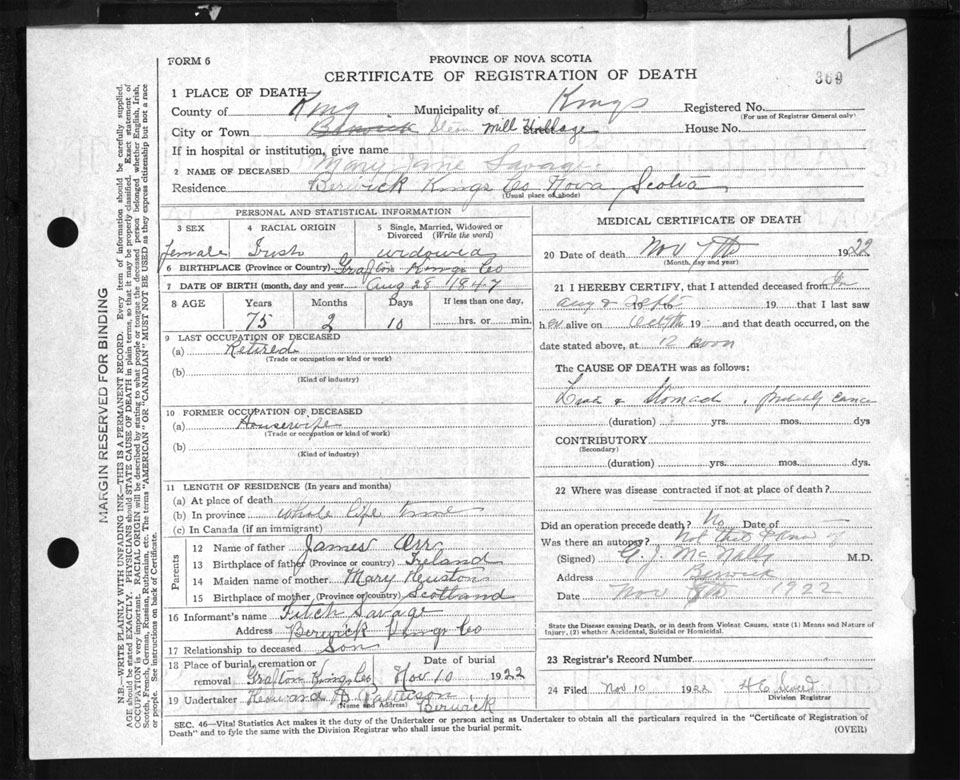 FORM 6
PROVINCE OF NOVA SCOTIA
CERTIFICATE OF REGISTRATION OF DEATH
369
1 PLACE OF DEATH
County of King Municipality of Kings Registered No.
(For use of Registrar General only)
City or Town Berwick Mill Village House No.
If in hospital or institution, give name
2 NAME OF DECEASED Mary Jane Savage
Residence Berwick Kings Co Nova Scotia
(Usual place of abode)
PERSONAL AND STATISTICAL INFORMATION
3 SEX 4 RACIAL ORIGIN 5 Single, Married, Widowed or Divorced (Write the word)
female Irish widowed
6 BIRTHPLACE (Province or Country) Grafton Kings Co
7 DATE OF BIRTH (month, day and year) Aug 28 1847
8 AGE Years Months Days If less than one day,
75 2 10 hrs. or min.
9 LAST OCCUPATION OF DECEASED
(a) Retired
(Trade or occupation or kind or work)
(b)
(Kind of industry)
10 FORMER OCCUPATION OF DECEASED
(a) Housewife
(Trade or occupation or kind of work)
(b)
(Kind of industry)
11 LENGTH OF RESIDENCE (In years and months)
(a) At place of death
(b) In province whole life time
(c) In Canada (if an immigrant)
Parents
12 Name of father James Orr
13 Birthplace of father (Province or country) Ireland
14 Maiden name of mother Mary Neustons
15 Birthplace of mother (Province or country) Scotland
16 Informant's name Fitch Savage
Address Berwick Kings Co
17 Relationship to deceased Son
18 Place of burial, cremation or removal Grafton Kings Co Date of burial Nov 10 1922
19 Undertaker Howard D Patterson
(Name and Address) Berwick
MEDICAL CERTIFICATE OF DEATH
20 Date of death Nov 7th 1922
(Month, day and year)
21 I HEREBY CERTIFY, that I attended deceased from
Aug & Sept 19 that I last saw
her alive on Oct 9th 19 and that death occurred, on
date stated above, at 12 noon
The CAUSE OF DEATH was as follows:
& Stomach, probably cancer
(duration) yrs. mos. dys
CONTRIBUTORY
(Secondary)
(duration) yrs. mos. dys.
22 Where was disease contracted if not at place of death?
Did an operation precede death? No Date of
Was there an autopsy? Not that I know of
(Signed) G. J. McNally M.D.
Address Berwick
Date Nov 8th 1922
State the Disease causing Death, or in death from Violent Causes, state (1) Means and Nature of Injury, (2) whether Accidental, Suicidal or Homicidal.
23 Registrar's Record Number
24 Filed Nov 10 1922
Division Registrar
SEC. 46—Vital Statistics Act makes it the duty of the Undertaker or person acting as Undertaker to obtain all the particulars required in the "Certificate of Registration of
Death" and to fyle the same with the Division Registrar who shall issue the burial permit.
(OVER)
MARGIN RESERVED FOR BINDING
N.B.—WRITE PLAINLY WITH UNFADING INK—THIS IS A PERMANENT RECORD. Every item of information should be carefully supplied.
AGE should be stated EXACTLY. PHYSICIANS should STATE CAUSE OF DEATH in plain terms, so that it may be properly classified. Exact statement of
OCCUPATION is very important. RACIAL ORIGIN will be described by stating to what people or tongue the deceased person belonged whether English, Irish,
Scotch, French, German, Russian, Ruthenian, etc. The terms "AMERICAN" or "CANADIAN" MUST NOT BE USED as they express citizenship but not a race
or people. See instructions on back of Certificate.